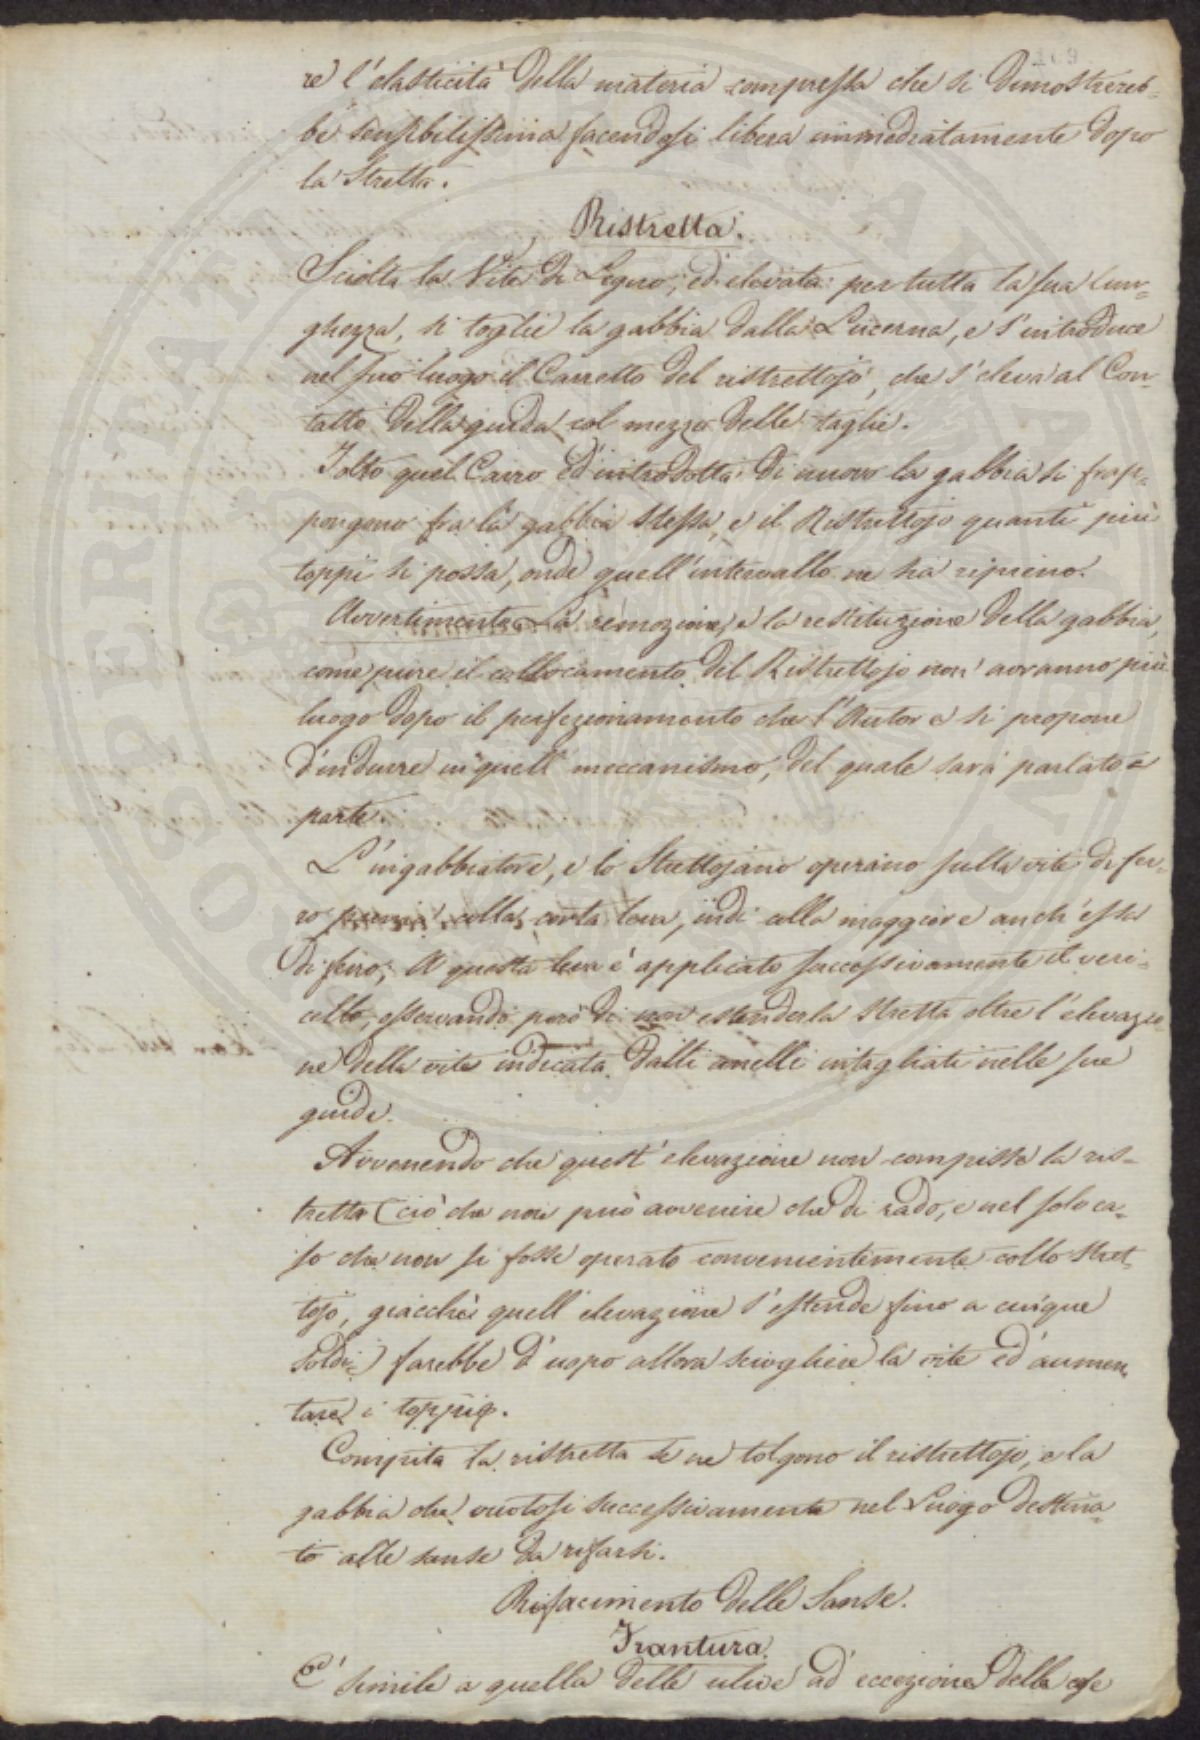 169
re l'elasticità della materia compressa che si dimostrereb-
be sensibilissima facendosi libera immediatamente dopo
la stretta.
Ristretta.
Sciolta la Vite di Legno, ed elevata per tutta la sua lun-
ghezza, si toglie la gabbia dalla Lucerna, e s'introduce
nel suo luogo il Carretto del ristrettojo, che s'eleva al Con-
tatto della guida col mezzo delle taglie.
Tolto quel Carro ed introdotta di nuovo la gabbia si frap-
pongono fra la gabbia stessa, e il Ristrettojo quanti più
toppi si possa, onde quell'intervallo ne sia ripieno.
Avvertimento La remozione, e la restituzione della gabbia,
come pure il collocamento del Ristrettojo non avranno più
luogo dopo il perfezionamento che l'Autore si propone
d'indurre in quell meccanismo, del quale sarà parlato a
parte.
L'ingabbiatore, e lo Strettojano operano sulla vite di fer-
ro prima colla corta leva, indi colla maggiore anch'essa
di ferro; A questa leva è applicato successivamente il veri-
cello, osservando però di non estender la stretta oltre l'elevazio-
ne della vite indicata dalli anelli intagliati nelle sue
guide.
Avvenendo che quest'elevazione non compisse la ris-
tretta (ciò che non può avvenire che di rado, e nel solo ca-
so che non si fosse operato convenientemente collo stret-
tojo, giacchè quell'elevazione s'estende fino a cinque
soldi) farebbe d'uopo allora sciogliere la vite ed aumen-
tare i toppi.
Compita la ristretta se ne tolgono il ristrettojo, e la
gabbia che vuotasi successivamente nel Luogo destina-
to alle sanse da rifarsi.
Rifacimento delle Sanse.
Frantura.
E' simile a quella delle ulive ad eccezione della
OPERITATI